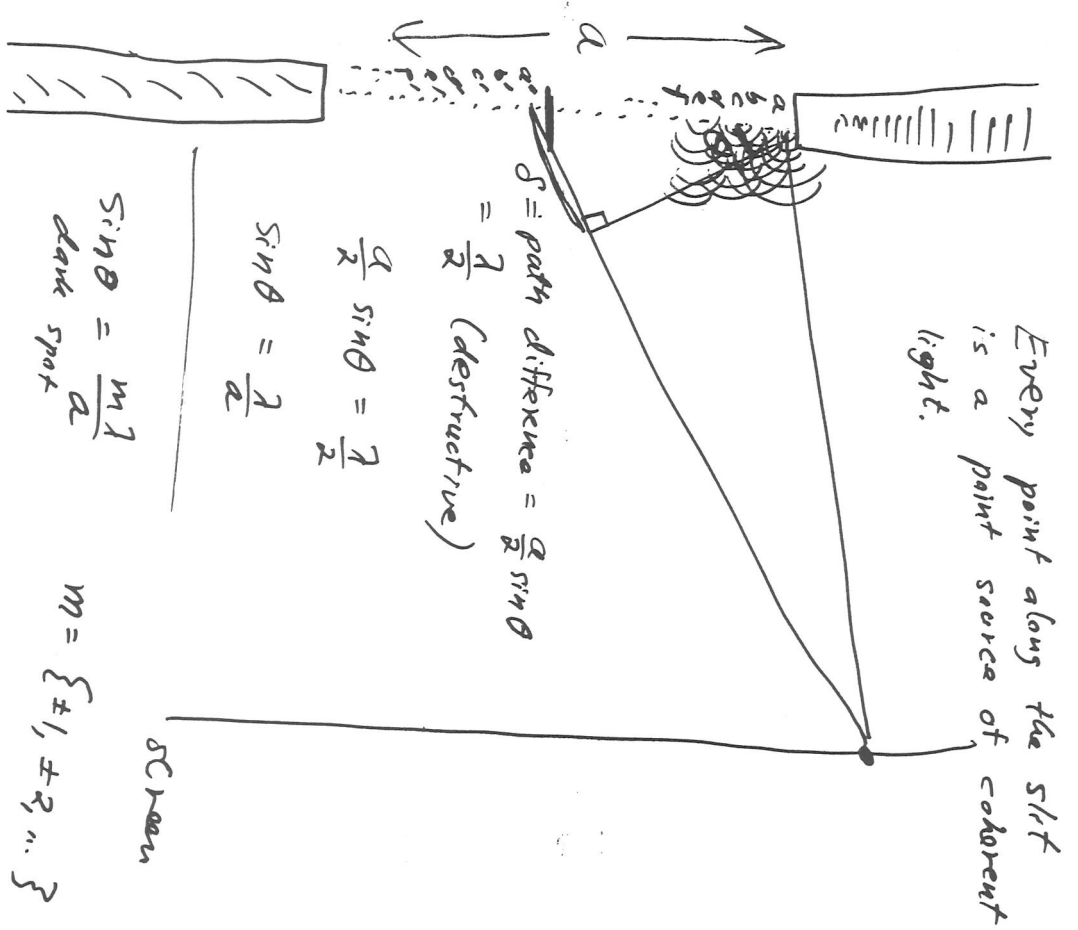 Every point along the slit
is a point source of coherent
light.
a
a b c d e f
a b c d e f
δ = path difference = a/2 sinθ
= λ/2 (destructive)
a/2 sinθ = λ/2
sinθ = λ/a
sinθ = mλ/a
dark spot
m = {±1, ±2, ... }
screen